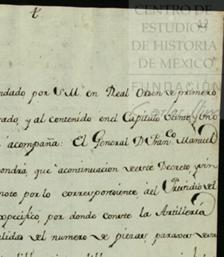 CENTRO DE
ESTUDIOS
DE HISTORIA
DE MÉXICO
FUNDACIÓN
Carlos Slim
ndado por S.M. en Real Orden de primero
rado, y al contenido en el Capitulo Veinte y cinco
acompaña: El General Dn Franco Manuel
ondrá que acontinuacion de este Decreto
note por lo correspondiente del
expecifico, por donde conste la Artilleria
alidas del numero de piezas para